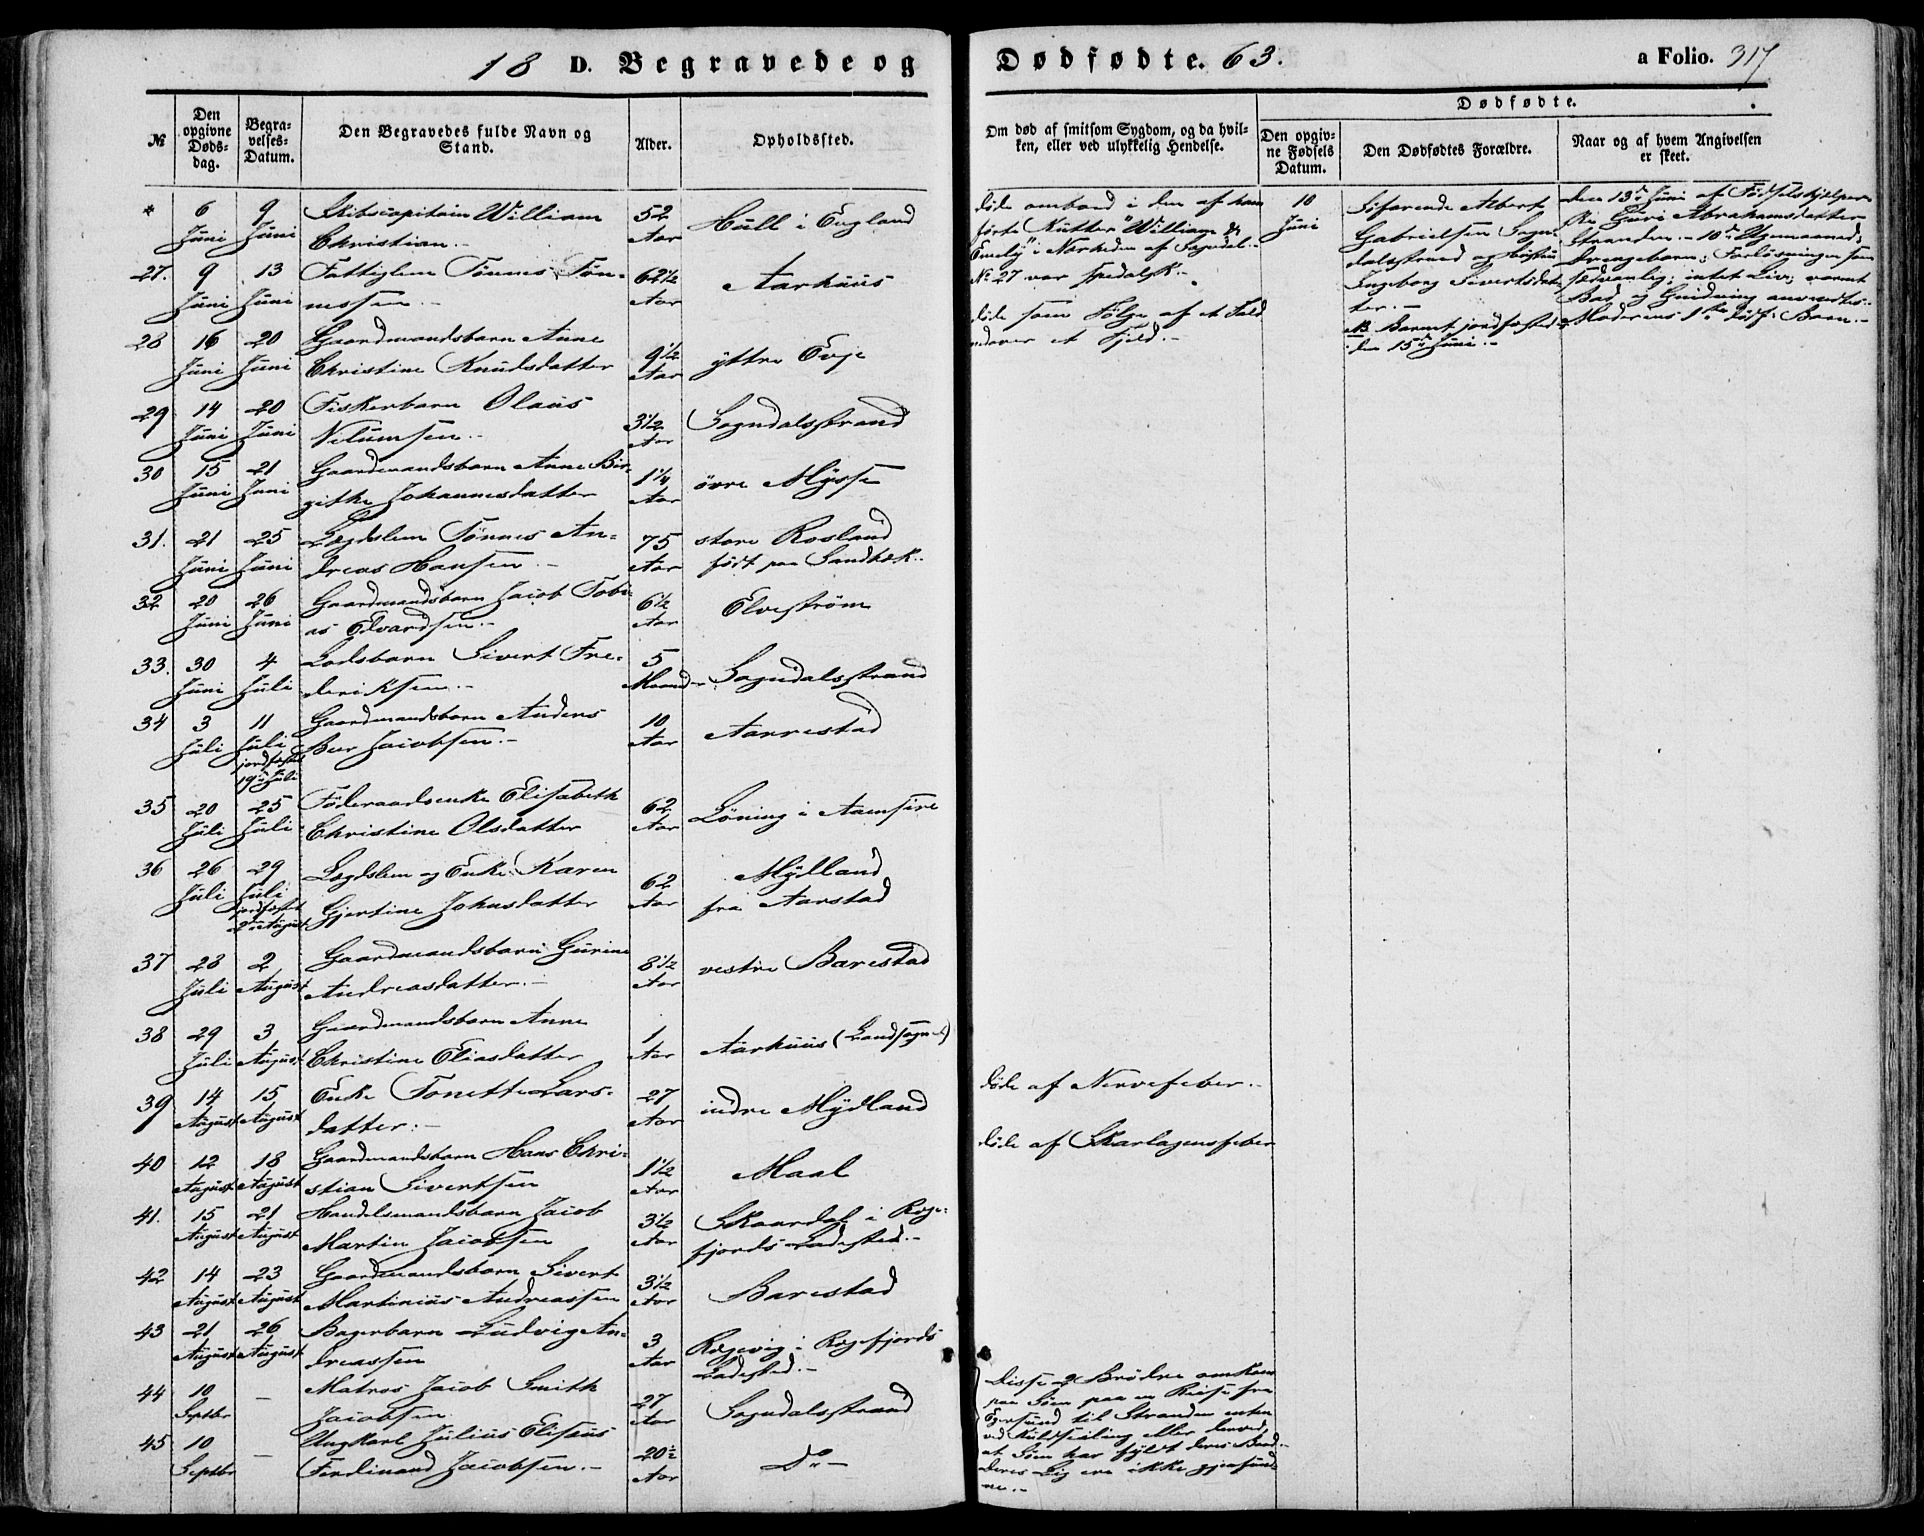 18 D. Begravede og
Dødfødte. 63.
a Folio. 317
№
Den opgivne Døds-dag.
Begra-velses-Datum.
Den Begravedes fulde Navn og Stand.
Alder.
Opholdssted.
Om død af smitsom Sygdom, og da hvil-
ken, eller ved ulykkelig Hendelse.
Dødfødte.
Den opgiv-ne Fødsels Datum.
Den Dødfødtes Forældre.
Naar og af hvem Angivelsen er skeet.
* 6 Juni 9 Juni Skibscapitain William
Christian.- 52 Aar Hull i England
27. 9 Juni 13 Juni Fattiglem Tønnes Tøn-
nessen.- 62½ Aar Aarhuus
28 16 Juni 20 Juni Gaardmandsbarn Anne
Christine Knudsdatter 9½ Aar yttre Evje
29 14 Juni 20 Juni Fiskerbarn Olaus
Nilumsen.- 3½ Aar Sogndalsstrand
30 15 Juni 21 Juni Gaardmandsbarn Anne Bir-
gitte Johannesdatter 1¼ Aar øvre Mysse
31. 21 Juni 25 Juni Lægdslem Tønnes An-
dreas Hansen.- 75 Aar store Rosland
født paa Sandbæk.
32 20 Juni 26 Juni Gaardmandsbarn Jacob Tobi-
as Edvardsen.- 6½ Aar Elvestrøm
33. 30 Juni 4 Juli Lodsbarn Sivert Fre-
deriksen.- 5 Maaneder Sogndalsstrand
34 3 Juli 11 Juli jordfæstet 19de Juli Gaardmandsbarn Anders
Ber Jacobsen.- 10 Aar Aarrestad
35 20 Juli 25 Juli Føderaadsenke Elisabeth
Christine Olsdatter 62 Aar Løning i Aamsire
36 26 Juli 29 Juli jordfæstet 2den August Lægdslem og Enke Karen
Gjertine Johnsdatter 62 Aar Mydland
fra Aarstad
37 28 Juli 2 August Gaardmandsbarn Gurine
Andreasdatter.- 8½ Aar vestre Barestad
38 29 Juli 3 August Gaardmandsbarn Anne
Christine Eliasdatter 1 Aar Aarhuus (Landsognet)
39 14 August 15 August Enke Tonette Lars-
datter.- 27 Aar indre Mydland
40 12 August 18 August Gaardmandsbarn Hans Chri-
stian Sivertsen 1½ Aar Maal
41. 15 August 21 August Handelsmandsbarn Jacob
Martin Jacobsen 3½ Aar Skaardal i Rege-
fjords Ladested.-
42 14 August 23 August Gaardmandsbarn Sivert
Martinius Andreassen 3½ Aar Barestad
43 21 August 26 August Bagerbarn Ludvig An-
dreassen 3 Aar Regevig i Regefjords
Ladested.-
44 10 Septbr - Matros Jacob Smith
Jacobsen 27 Aar Sogndalsstrand
45 10 Septbr - Ungkarl Julius Elisæus
Ferdinand Jacobsen.- 20½ Aar Do -
døde ombord i den af ham
førte Kutter "William &
Emely" i Nærheden af Sogndal.-
№ 27 var spedalsk.-
døde som Følge af et Fald
udover et Fjeld.-
døde af Nervefeber.-
døde af Skarlagensfeber
Disse 2 Brødre omkom
paa Søen paa en Reise fra
Egersund til Stranden enten
ved Kuldseiling eller derved,
at Søen har fyldt deres Baad.-
deres Lig ere ikke gjenfund-
ne.-
10 Juni
Søfarende Albert
Gabrielsen Sogn-
dalsstrand og Hustru
Ingeborg Sivertsdat-
ter.-
NB. Barnet jordfæstedes
den 15de Juni.-
den 13de Juni af Fødselshjelper-
ske Guri Abrahamsdatter
Stranden.- 10de Ugemaaned;
Drengebarn; Forløsningen som
sædvanlig; intet Liv; varmt
Bad og Gnidning anvendtes.-
Moderens 1ste dødf. Barn.-